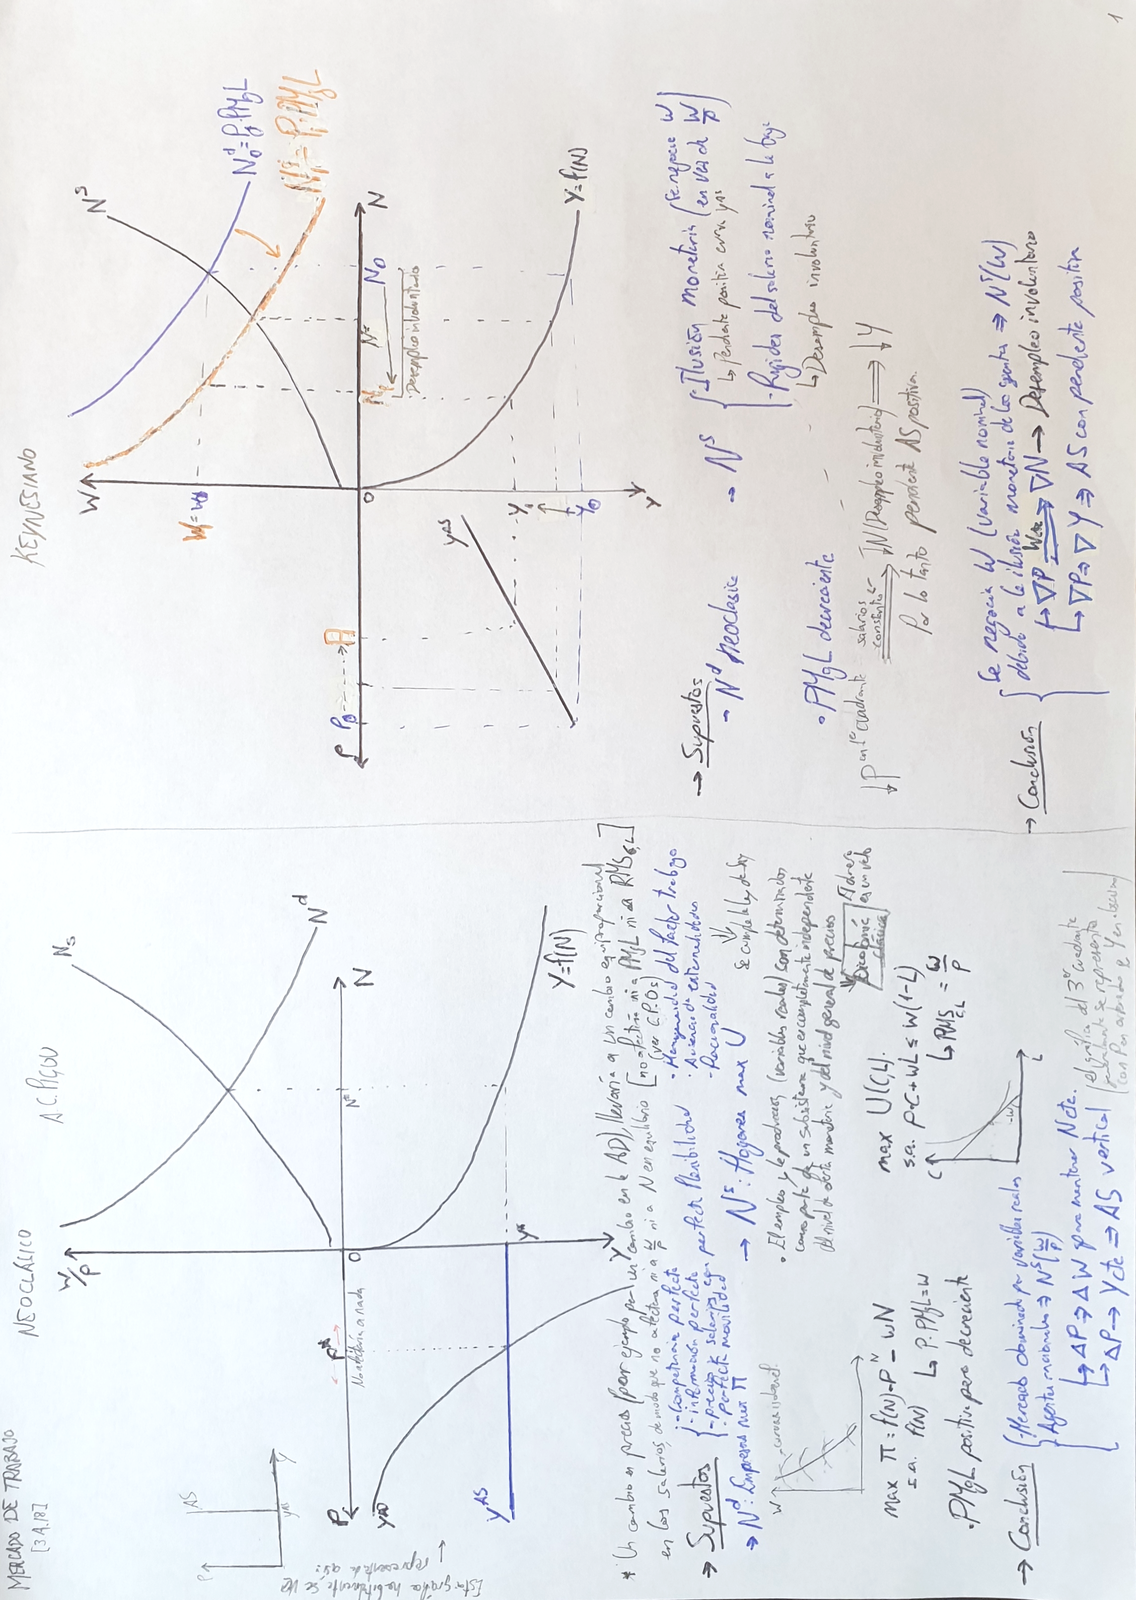 MERCADO DE TRABAJO
[3.A.18]
NEOCLÁLICO
A.C. PIGOU
KEYNESIANO
P
AS
yᴬˢ
Y
Esta gráfica habitualmente se ve
representada así:
W/P
Ns
Nᵈ
N
N*
0
P
P*
No afectaría a nada
yᴬᴰ
yᴬˢ
y*
Y=f(N)
Y
* Un cambio en precios (por ejemplo por un cambio en la AD), llevaría a un cambio equiproporcional
en los salarios, de modo que no afectaría ni a W/P ni a N en equilibrio [no afectaría ni a PMgL ni a RMS C,L]
(ver C.P.Os)
→ Supuestos
- Competencia perfecta
- información perfecta
- precios y salarios con perfecta flexibilidad
- perfecta movilidad
- Homogeneidad del factor trabajo
- Ausencia de externalidades
- Racionalidad
→ Nᵈ: Empresas max Π
→ Nˢ: Hogares max U
Se cumple la ley de Say
W
N
• El empleo y la producción (variables reales) son determinados
como parte de un subsistema que es completamente independiente
del nivel de oferta monetaria y del nivel general de precios
Dicotomía clásica
El dinero es un velo
max Π = f(N)·P − wN
s.a. f(N)
↳ P·PMgL=W
• PMgL positiva pero decreciente
max U(C,L)
s.a. P·C+wL ≤ w(1-L)
↳ RMS C,L = W/P
C
L
→ Conclusión
- Mercado dominado por variables reales
- Agentes racionales ⇒ Nˢ(W/P)
↳ ΔP ⇒ ΔW para mantener N cte.
↳ ΔP → Y cte ⇒ AS vertical
el gráfico del 3er cuadrante
habitualmente se representa
con P en ordenadas e Y en
W
Nˢ
N₀ᵈ = P₀·PMgL
N₁ᵈ = P₁·PMgL
W₁ = W₀
N
N₁
N*
N₀
Desempleo involuntario
0
P
P₀
P₁
yᴬˢ
Y₁
Y₀
Y=f(N)
Y
→ Supuestos
→ Nᵈ neoclásica
→ Nˢ
- Ilusión monetaria (se negocia W en vez de W/P)
↳ Pendiente positiva curva yᴬˢ
- Rigidez del salario nominal a la baja
↳ Desempleo involuntario
• PMgL decreciente
↓P en 1er cuadrante salarios constantes ⇒ ↓N (Desempleo involuntario) ⇒ ↓Y
Por lo tanto pendiente AS positiva.
→ Conclusión
Se negocia W (variable nominal)
debido a la ilusión monetaria de los agentes ⇒ Nˢ(W)
↳ ∇P W cte ⇒ ∇N → Desempleo involuntario
↳ ∇P ⇒ ∇Y ⇒ AS con pendiente positiva
1